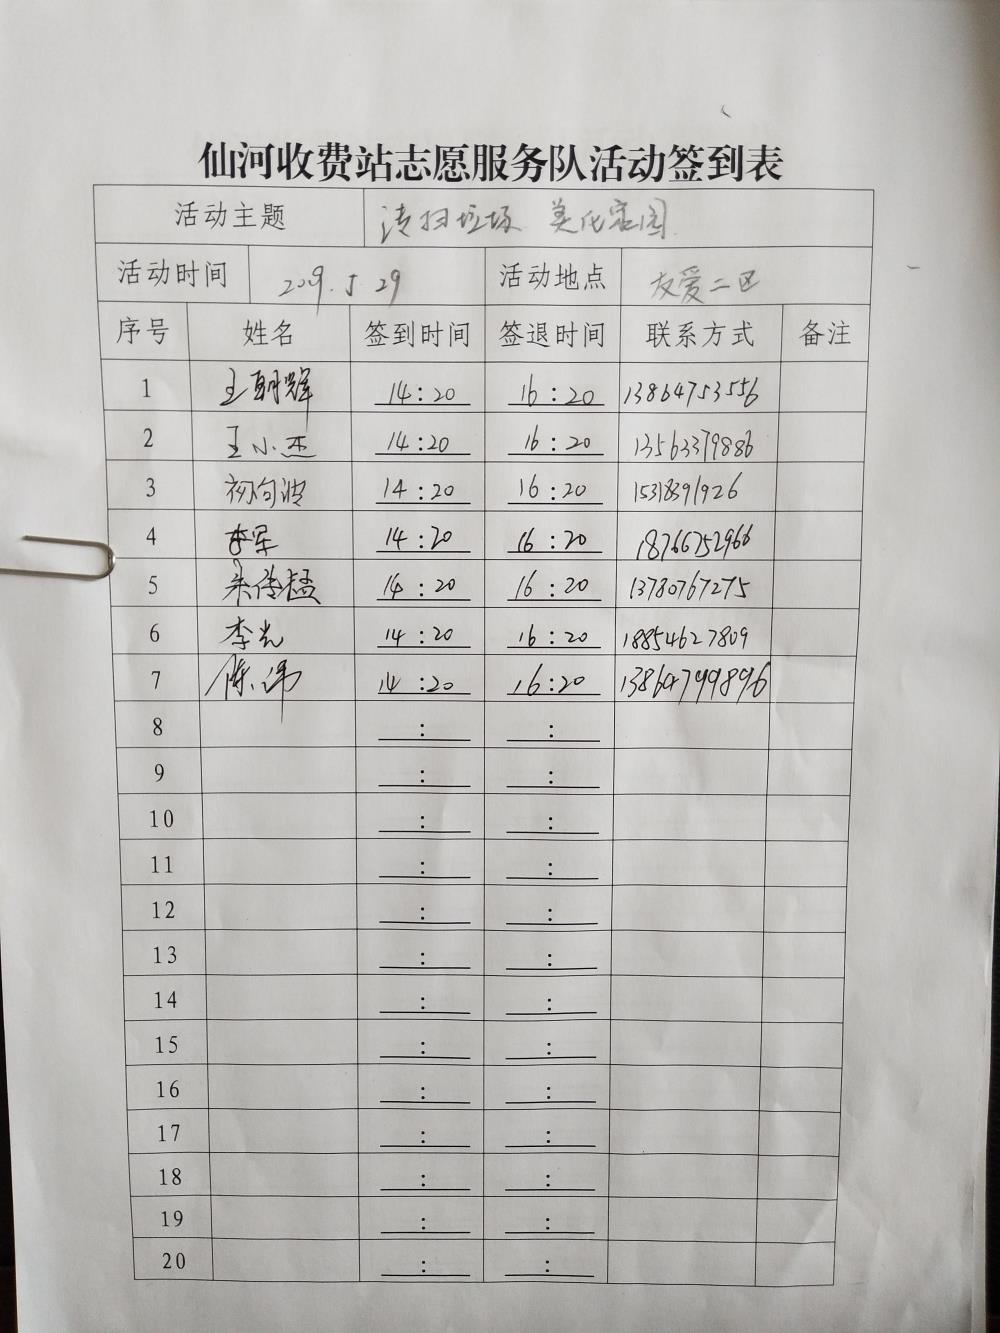 仙河收费站志愿服务队活动签到表
活动主题 清扫垃圾 美化家园
活动时间 2019.5.29 活动地点 友爱二区
序号 姓名 签到时间 签退时间 联系方式 备注
1 王朝辉 14:20 16:20 13864753556
2 王小杰 14:20 16:20 13563379886
3 初向波 14:20 16:20 15318391926
4 李军 14:20 16:20 18766752966
5 朱传猛 14:20 16:20 13780767275
6 李光 14:20 16:20 18854627809
7 陈伟 14:20 16:20 13864799896
8 : :
9 : :
10 : :
11 : :
12 : :
13 : :
14 : :
15 : :
16 : :
17 : :
18 : :
19 : :
20 : :